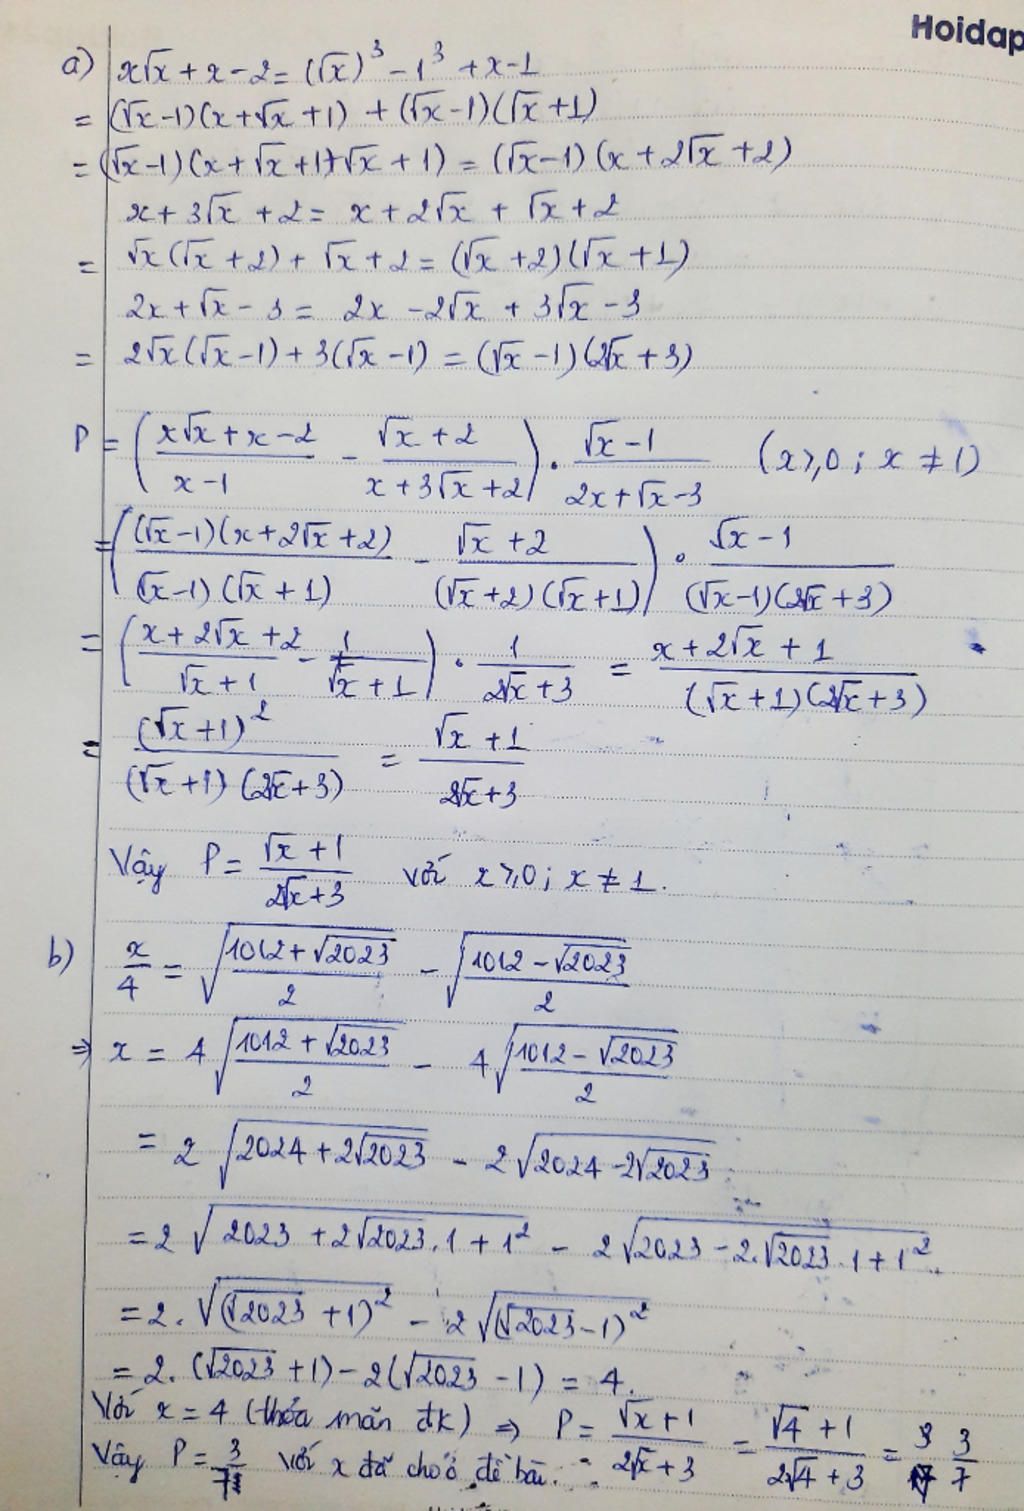 Hoidap
a) x√x + x - 2 = (√x)³ - 1³ + x - 1
= (√x - 1)(x + √x + 1) + (√x - 1)(√x + 1)
= (√x - 1)(x + √x + 1 + √x + 1) = (√x - 1)(x + 2√x + 2)
x + 3√x + 2 = x + 2√x + √x + 2
= √x(√x + 2) + √x + 2 = (√x + 2)(√x + 1)
2x + √x - 3 = 2x - 2√x + 3√x - 3
= 2√x(√x - 1) + 3(√x - 1) = (√x - 1)(2√x + 3)
P = ((x√x + x - 2)/(x - 1) - (√x + 2)/(x + 3√x + 2)) · (√x - 1)/(2x + √x - 3) (x ≥ 0; x ≠ 1)
= ((√x - 1)(x + 2√x + 2)/(√x - 1)(√x + 1) - (√x + 2)/(√x + 2)(√x + 1)) · (√x - 1)/(√x - 1)(2√x + 3)
= ((x + 2√x + 2)/(√x + 1) - 1/(√x + 1)) · 1/(2√x + 3) = (x + 2√x + 1)/(√x + 1)(2√x + 3)
= (√x + 1)²/(√x + 1)(2√x + 3) = (√x + 1)/(2√x + 3)
Vậy P = (√x + 1)/(2√x + 3) với x ≥ 0; x ≠ 1.
b) x/4 = √((1012 + √2023)/2) - √((1012 - √2023)/2)
⇒ x = 4√((1012 + √2023)/2) - 4√((1012 - √2023)/2)
= 2√(2024 + 2√2023) - 2√(2024 - 2√2023)
= 2√(2023 + 2√2023.1 + 1²) - 2√(2023 - 2.√2023.1 + 1²)
= 2.√((√2023 + 1)²) - 2√((√2023 - 1)²)
= 2.(√2023 + 1) - 2(√2023 - 1) = 4.
Với x = 4 (thỏa mãn đk) ⇒ P = (√x + 1)/(2√x + 3) = (√4 + 1)/(2√4 + 3) = 3/7
Vậy P = 3/7 với x đã cho ở đề bài.